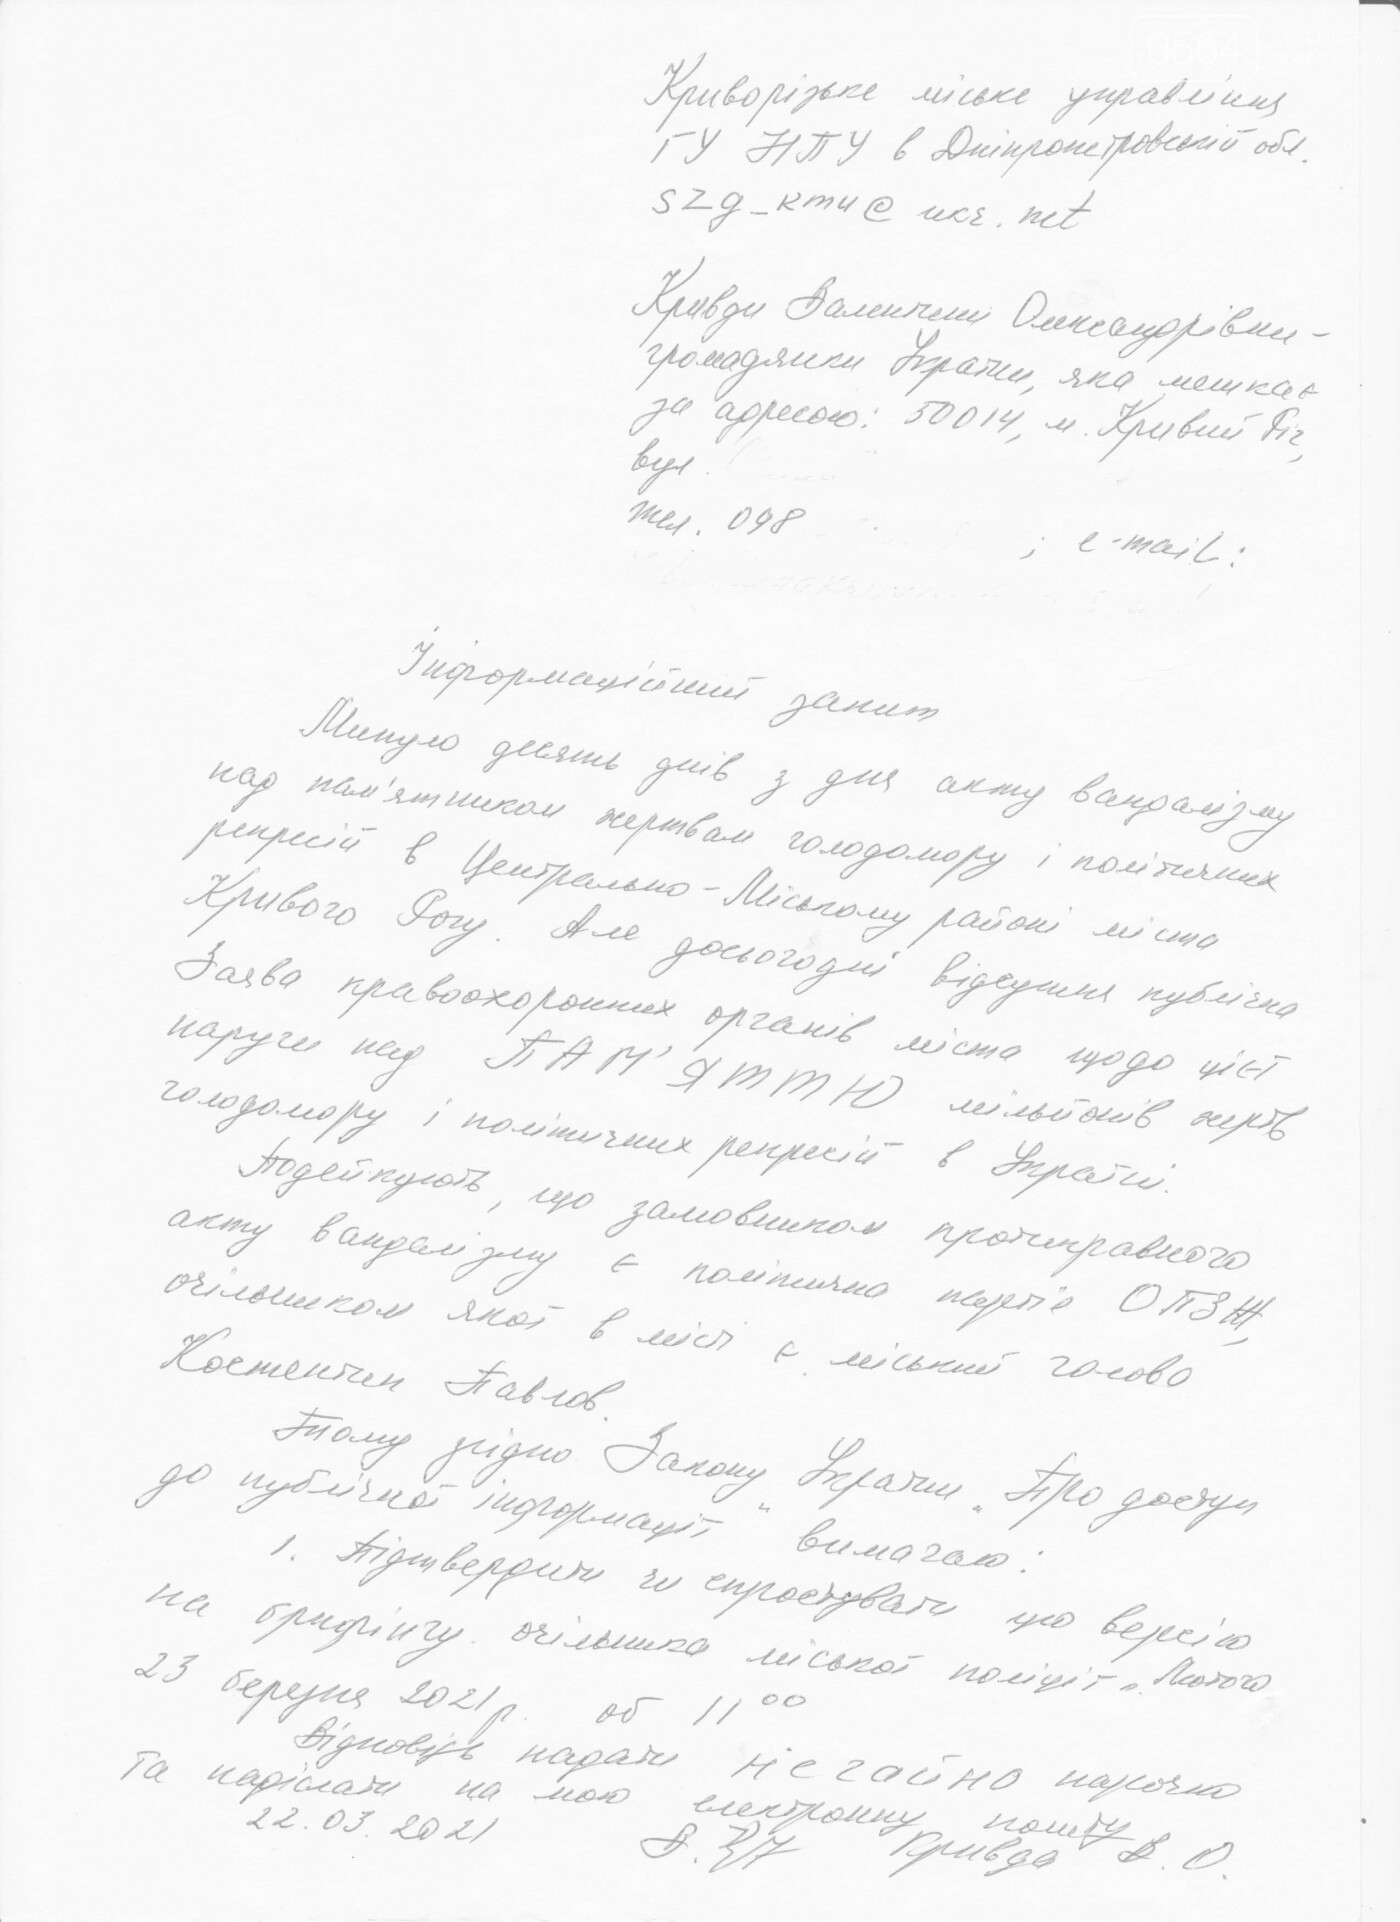 0564
Криворізьке міське управління
ГУ НПУ в Дніпропетровській обл.
szg_kmu@ukr.net
Кривди Валентини Олександрівни -
громадянки України, яка мешкає
за адресою: 50014, м. Кривий Ріг,
вул.
тел. 098 ; e-mail:
Інформаційний запит
Минуло десять днів з дня акту вандалізму
над пам'ятником жертвам голодомору і політичних
репресій в Центрально-Міському районі міста
Кривого Рогу. Але досьогодні відсутня публічна
Заява правоохоронних органів міста щодо цієї
наруги над ПАМ'ЯТТЮ мільйонів жертв
голодомору і політичних репресій в Україні.
Подейкують, що замовником протиправного
акту вандалізму є політична партія ОПЗЖ,
очільником якої в місті є міський голова
Костянтин Павлов.
Тому згідно Закону України "Про доступ
до публічної інформації" вимагаю:
1. Підтвердити чи спростувати цю версію
на брифінгу очільника міської поліції Лютого
23 березня 2021р. об 11 00
Відповідь надати негайно нарочно
та надіслати на мою електронну пошту
22.03.2021 Кривда В.О.